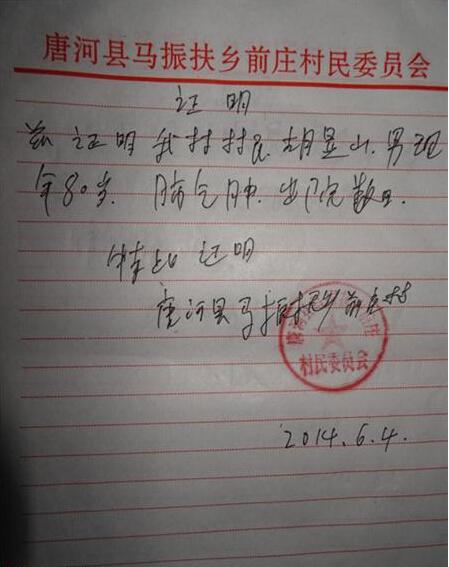 唐河县马振扶乡前庄村民委员会
证明
兹证明我村村民胡显山.男现
年80岁.肺气肿.出院数日.
特此证明
唐河县马振扶乡前庄村
村民委员会
2014.6.4.